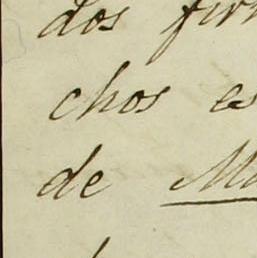 dos fir
chos es
de Ma